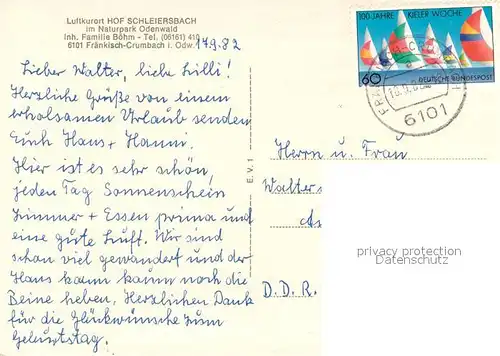 Luftkurort HOF SCHLEIERSBACH
im Naturpark Odenwald
Inh. Familie Böhm - Tel. (06161) 419
6101 Fränkisch-Crumbach i. Odw.
17.9.82
Lieber Walter, liebe Lilli!
Herzliche Grüße von einem
erholsamen Urlaub senden
Euch Hans + Hanni.
Hier ist es sehr schön,
jeden Tag Sonnenschein
Zimmer + Essen prima und
eine gute Luft. Wir sind
schon viel gewandert und der
Hans kaum kaum noch die
Beine heben. Herzlichen Dank
für die Glückwünsche zum
Geburtstag.
E.V.1
100 JAHRE KIELER WOCHE
60 DEUTSCHE BUNDESPOST
6101
Herrn u. Frau
Walter
D.D.R.
privacy protection
Datenschutz